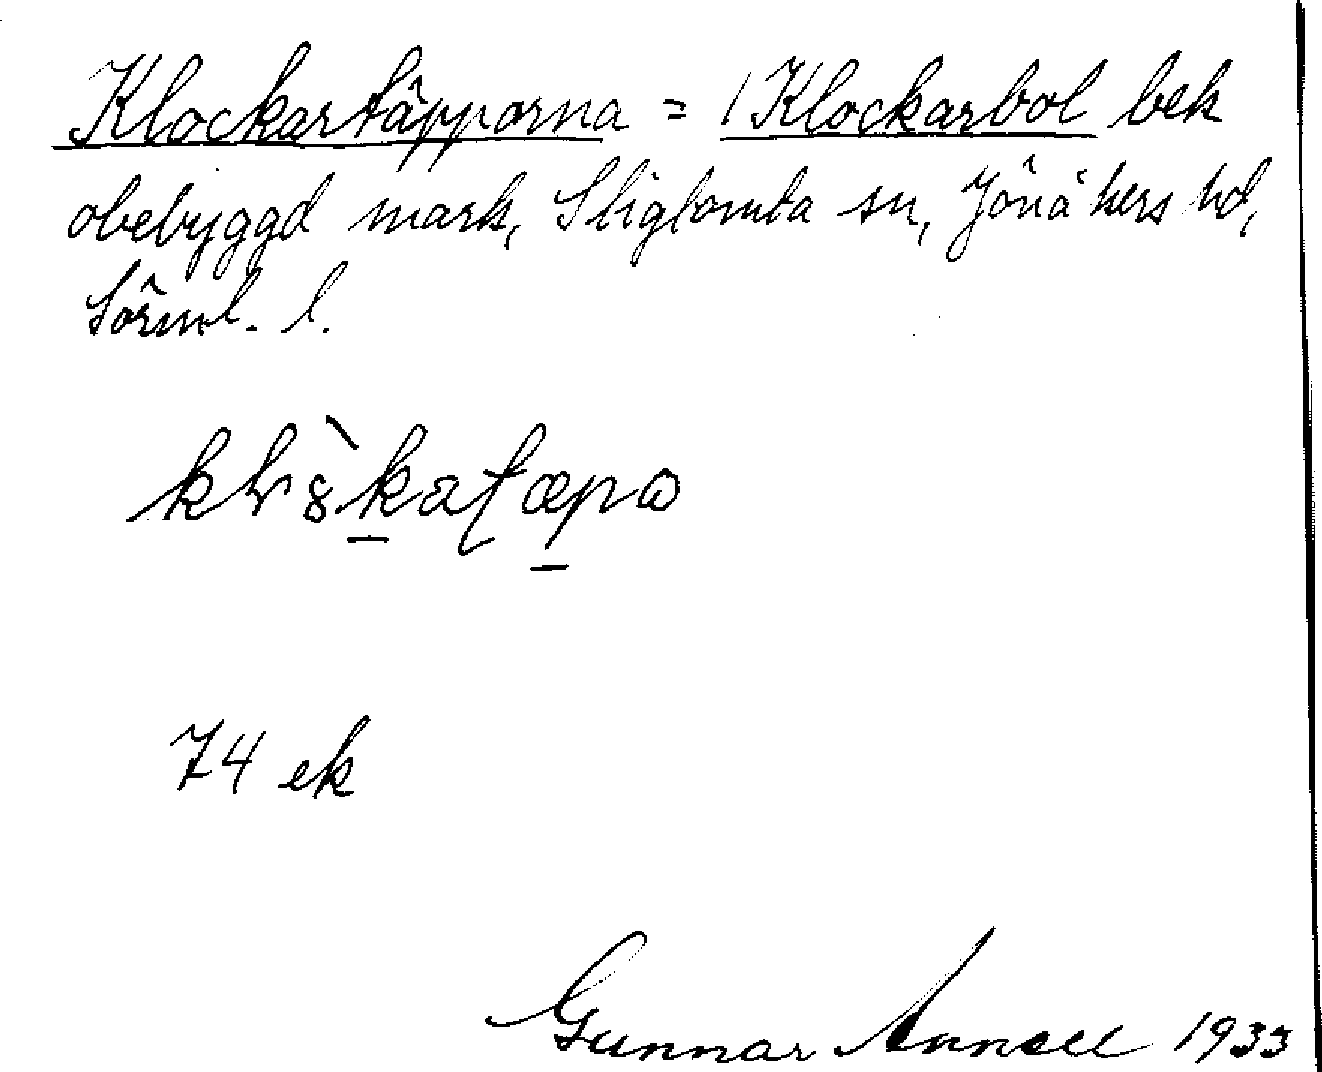 Klockartäpporna = 1 Klockarbol bek
obebyggd mark, Stigtomta sn, Jönåkers hd,
Sörml. l.
74 ek
Gunnar Annell 1933